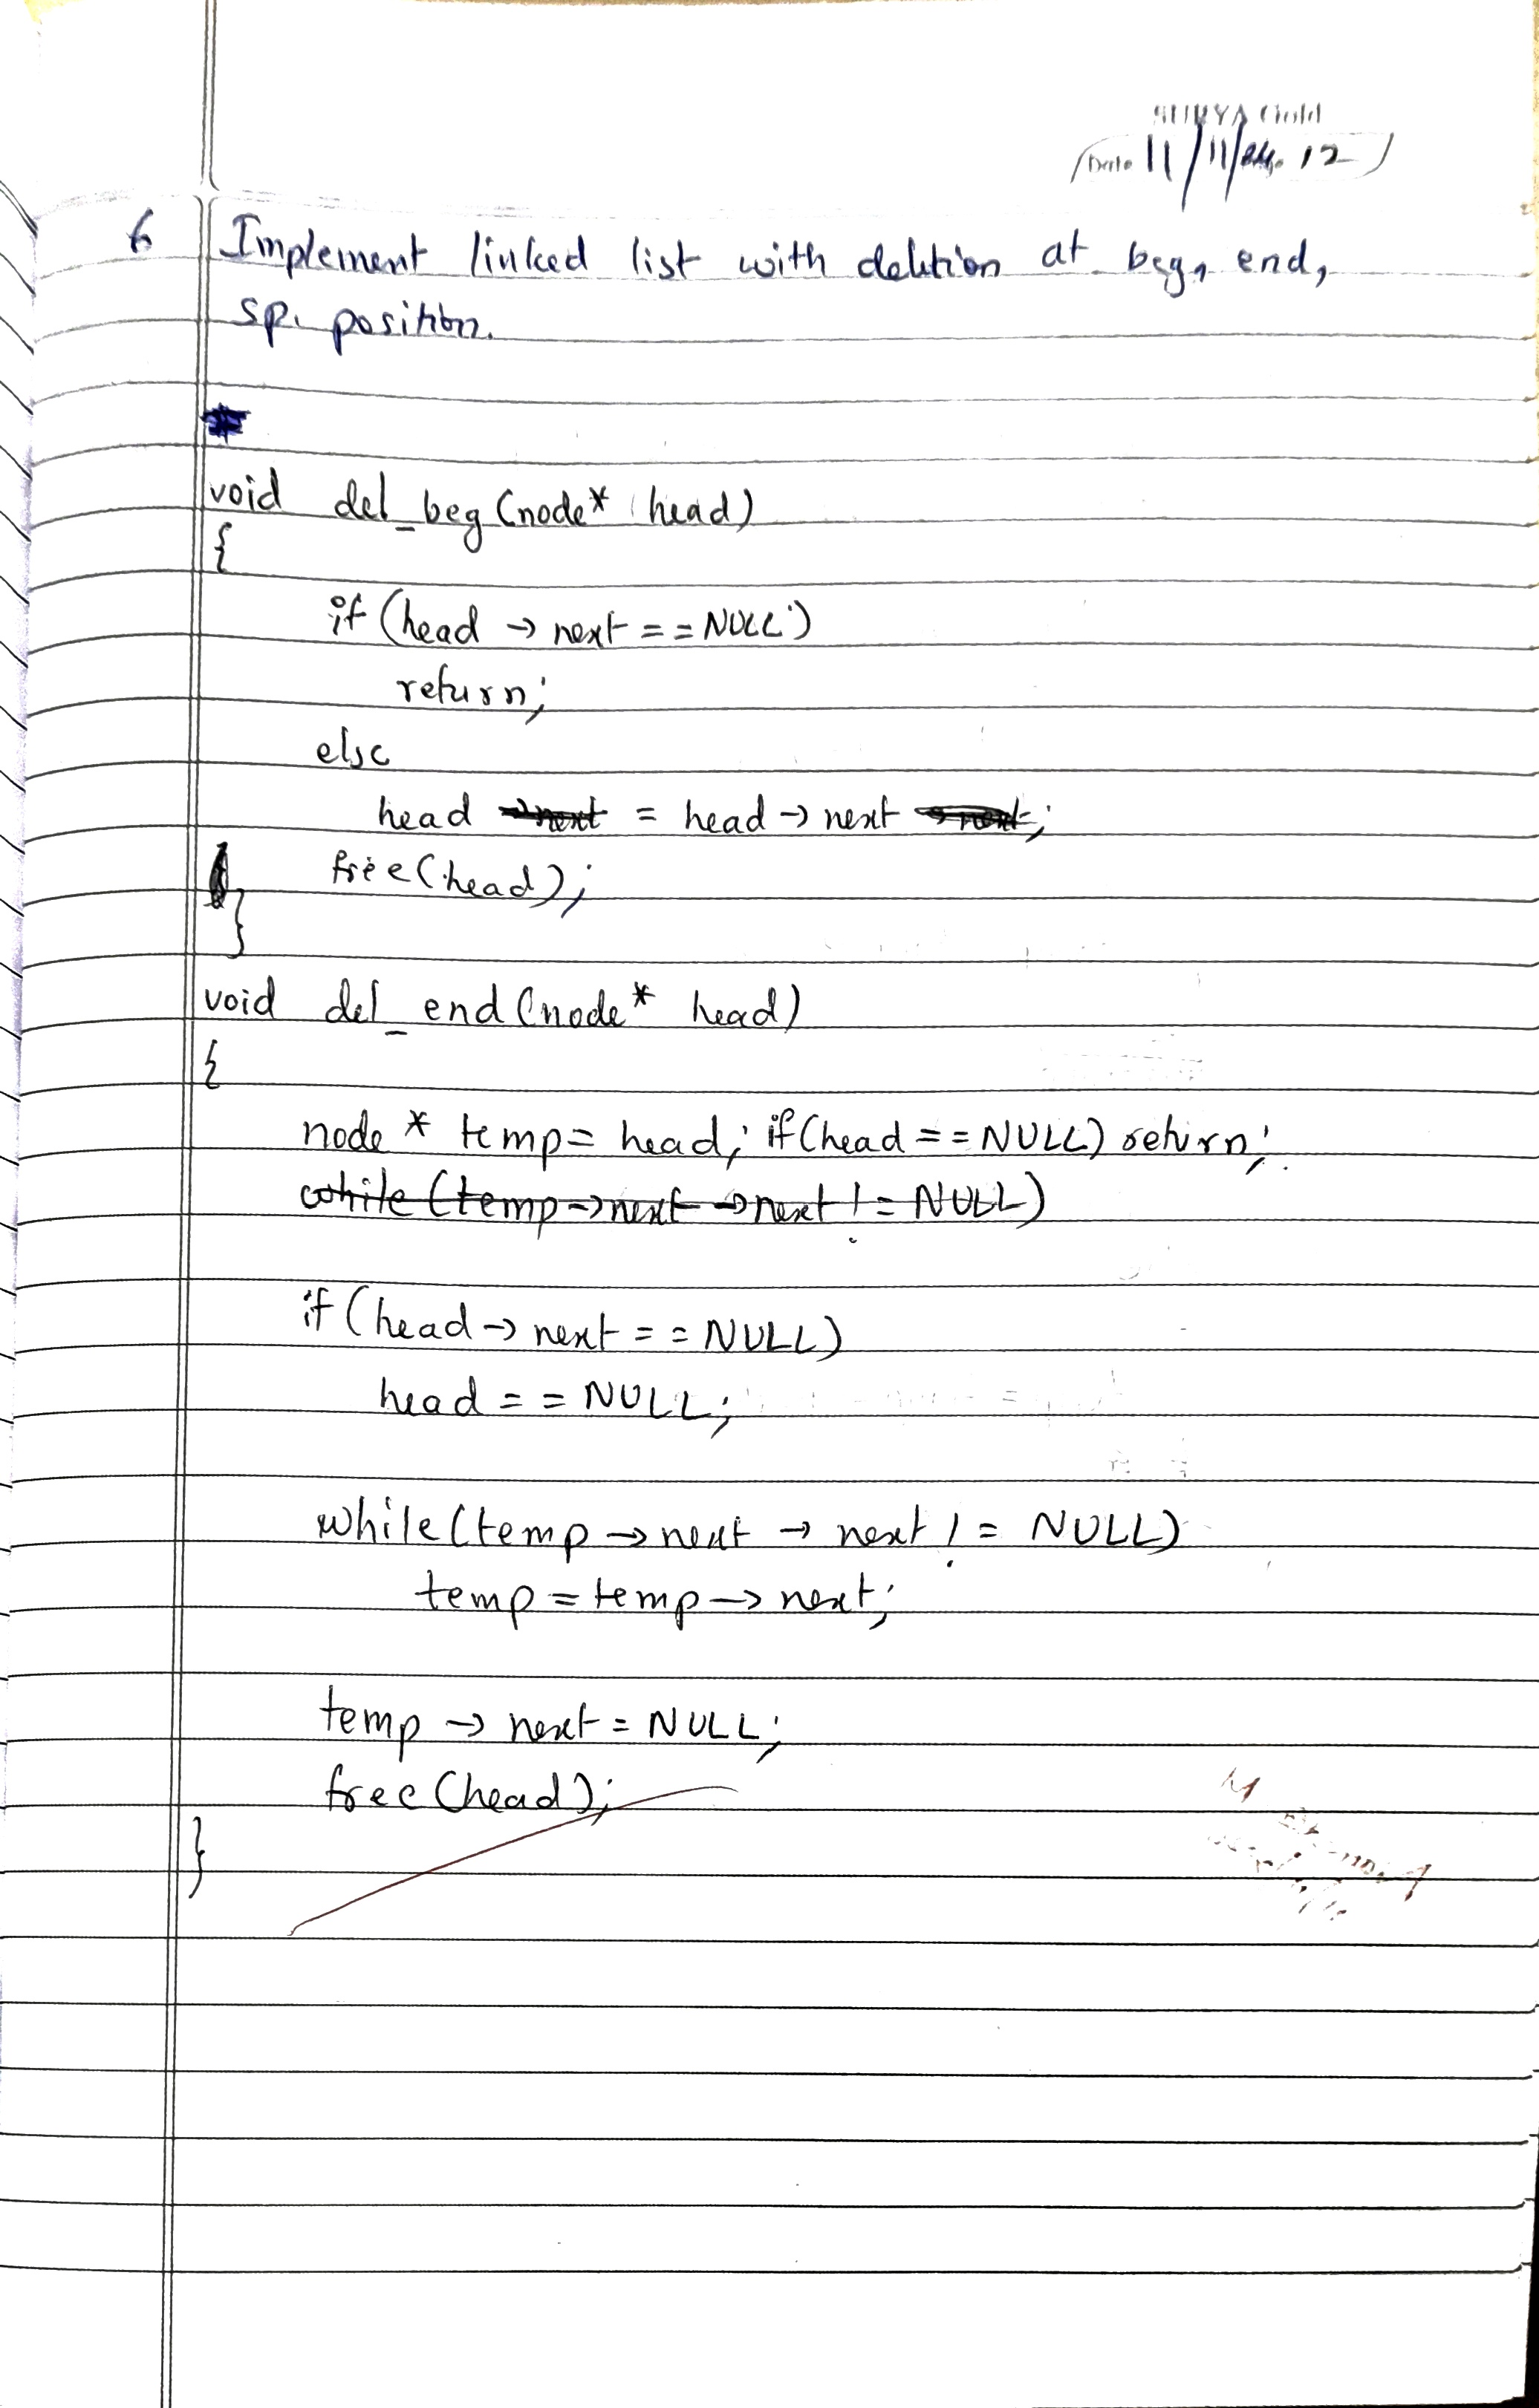 SURYA Gold
Date 11/11/24 12
6 Implement linked list with deletion at beg, end,
sp. position.
void del_beg (node* head)
{
if (head → next == NULL)
return;
else
head = head → next ;
free(head);
}
void del_end (node* head)
{
node * temp = head; if (head == NULL) return;
while (temp → next → next != NULL)
if (head → next == NULL)
head == NULL;
while (temp → next → next != NULL)
temp = temp → next;
temp → next = NULL;
free (head);
}